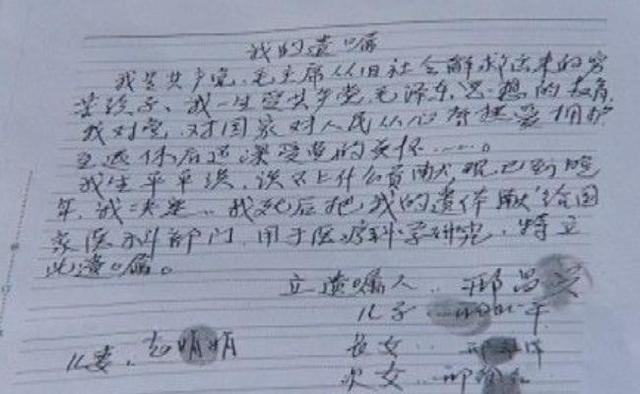 我的遗嘱
我是共产党、毛主席从旧社会解救出来的穷
苦孩子、我一生受共产党毛泽东思想的教育
我对党、对国家对人民从心 热爱 拥护
退休后还深受党的关怀……。
我生平平淡,谈不上什么贡献,现已到晚
年,我决定..我死后把我的遗体献给国
家医科部门,用于医疗科学研究,特立
此遗嘱。
立遗嘱人..邢昌
儿子 平
儿妻、赵娟娟
长女
次女..邢